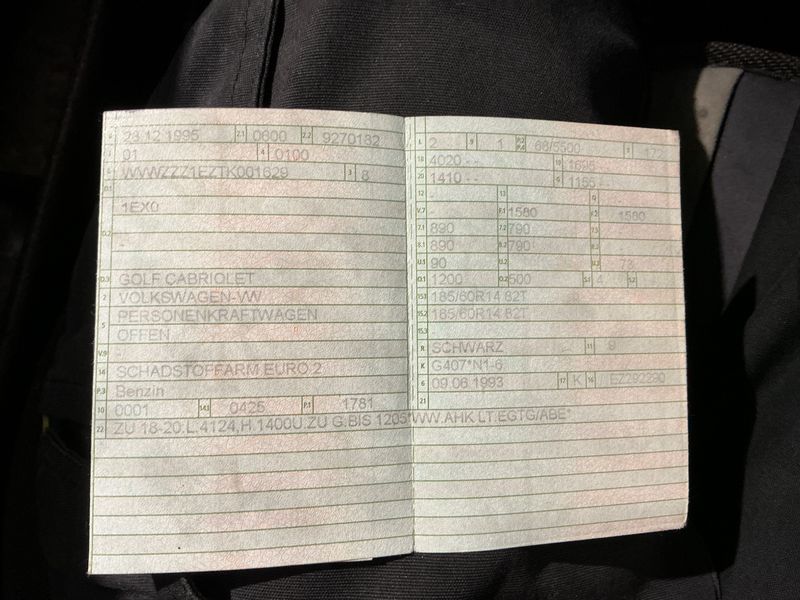 B 23.12.1995 2.1 0600 2.2 9270132
J 01 4 0100
E WVWZZZ1EZTK001629 3 8
D.1 -
D.2 1EX0
-
-
D.3 GOLF CABRIOLET
2 VOLKSWAGEN-VW
5 PERSONENKRAFTWAGEN
OFFEN
V.9 -
14 SCHADSTOFFARM EURO 2
P.3 Benzin
10 0001 14.1 0425 P.1 1781
22 ZU 18-20:L.4124,H.1400U.ZU G.BIS 1205*WW.AHK LT.EGTG/ABE*
L 2 9 1 P.2 P.4 66/5500 T 172
18 4020 - - 19 1695
20 1410 - - G 1155 -
12 - 13 Q -
V.7 - F.1 1580 F.2 1580
7.1 890 7.2 790 7.3 -
8.1 890 8.2 790 8.3 -
U.1 90 U.2 U.3 73
O.1 1200 O.2 500 S.1 4 S.2
15.1 185/60R14 82T
15.2 185/60R14 82T
15.3 -
R SCHWARZ 11 9
K G407*N1-6
6 09.06.1993 17 K 16 EZ292290
21